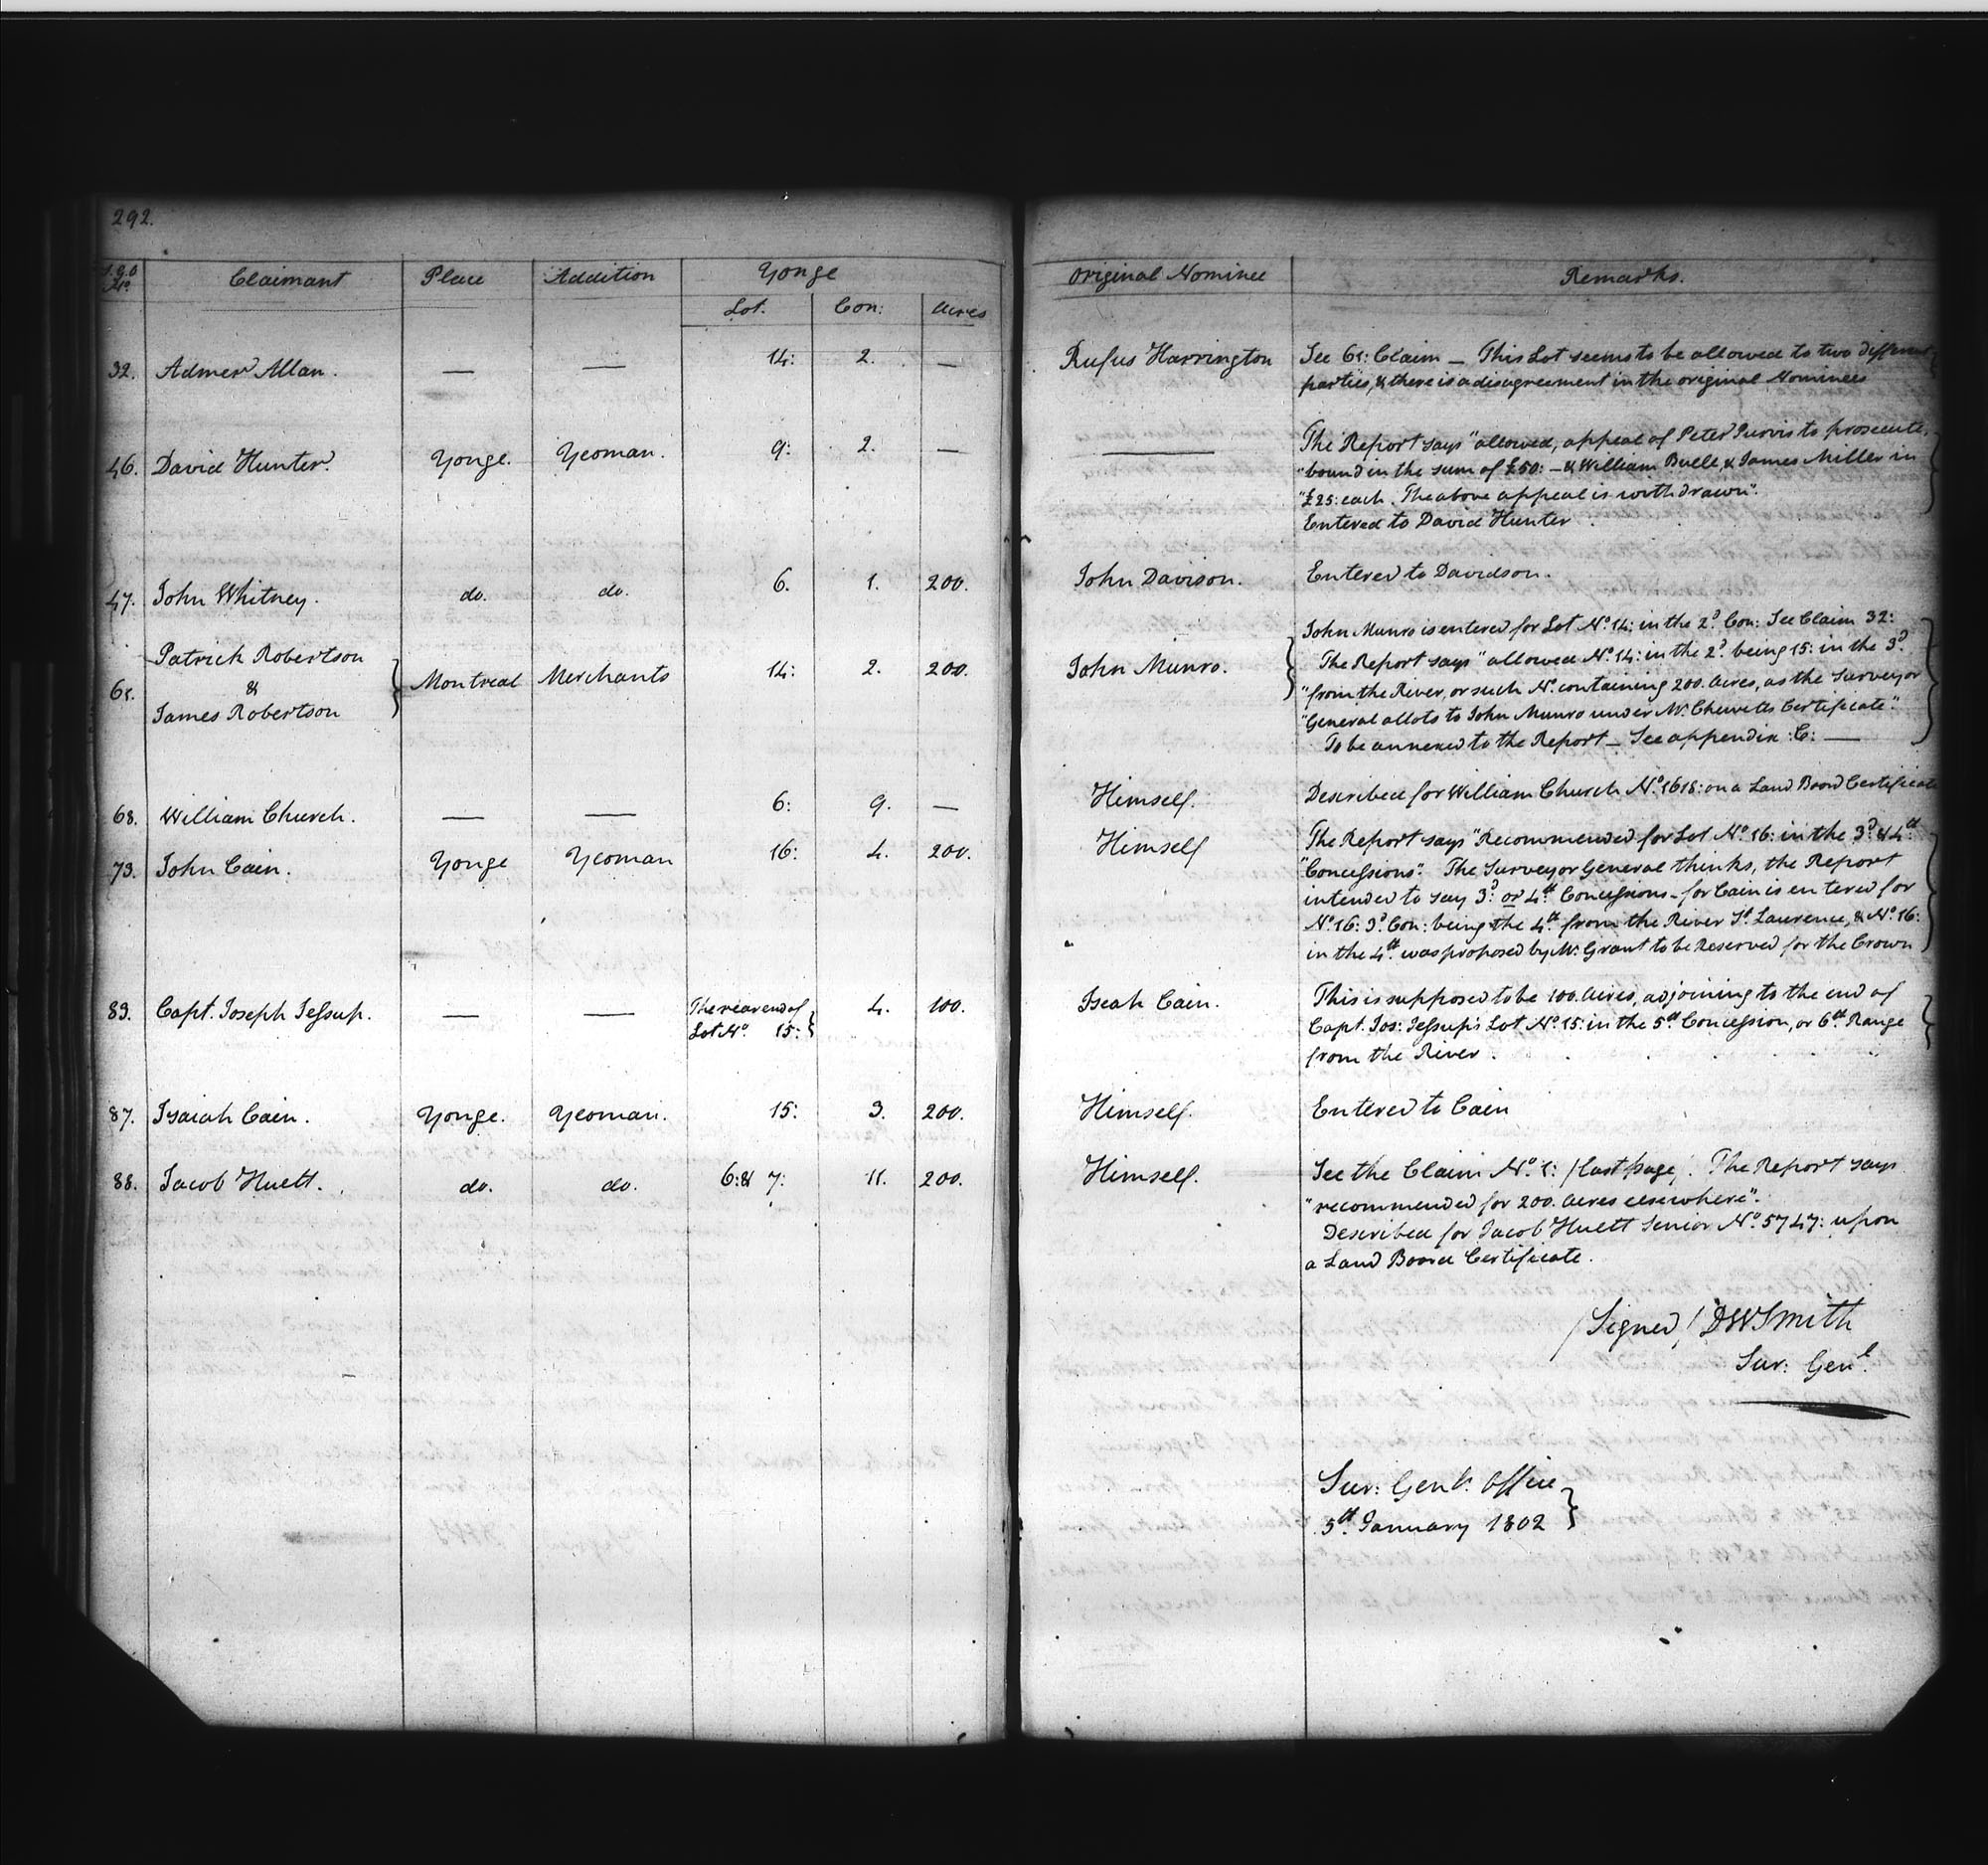 292.
S.G.O Claimant Place Addition Yonge Original Nominee Remarks.
No. Lot. Con: Acres
32. Admer Allan. — — 14: 2. — Rufus Harrington See 61: Claim — This Lot seems to be allowed to two different
parties, & there is a disagreement in the original Nominees
46. David Hunter. Yonge. Yeoman. 9: 2. — — The Report says "allowed, appeal of Peter Purvis to prosecute,
"bound in the sum of £50: — & William Buell, & James Miller in
"£25: each. The above appeal is withdrawn".
Entered to David Hunter.
47. John Whitney. do. do. 6. 1. 200. John Davison. Entered to Davidson.
61. Patrick Robertson
&
James Robertson } Montreal Merchants 14: 2. 200. John Munro. } John Munro is entered for Lot No. 14: in the 2d. Con: See Claim 32:
The Report says "allowed No. 14: in the 2d. being 15: in the 3d.
"from the River, or such No. containing 200. Acres, as the Surveyor
"General allots to John Munro under Mr. Chewetts Certificate".
To be annexed to the Report — See appendix :C: —
68. William Church. — — 6: 9. — Himself. Described for William Church No. 1618: on a Land Board Certificate
73. John Cain. Yonge Yeoman 16: 4. 200. Himself The Report says "Recommended for Lot No. 16: in the 3d. & 4th.
"Concessions". The Surveyor General thinks, the Report
intended to say 3d. or 4th. Concessions - for Cain is entered for
No. 16: 3d. Con: being the 4th. from the River St. Laurence, & No. 16:
in the 4th. was proposed by Mr. Grant to be Reserved for the Crown
83. Capt. Joseph Jessup. — — The rear end of
Lot No. 15: } 4. 100. Iseah Cain. This is supposed to be 100. Acres, adjoining to the end of
Capt. Jos: Jessup's Lot No. 15: in the 5th Concession, or 6th. Range
from the River.
87. Isaiah Cain. Yonge. Yeoman. 15: 3. 200. Himself. Entered to Cain
88. Jacob Huett. do. do. 6: & 7: 11. 200. Himself. See the Claim No. 1: /last page/. The Report says
"recommended for 200. Acres elsewhere".
Described for Jacob Huett Senior No. 5747: upon
a Land Board Certificate.
/Signed/ DWSmith
Sur: Genl.
Sur: Genls. Office
5th. January 1802 }